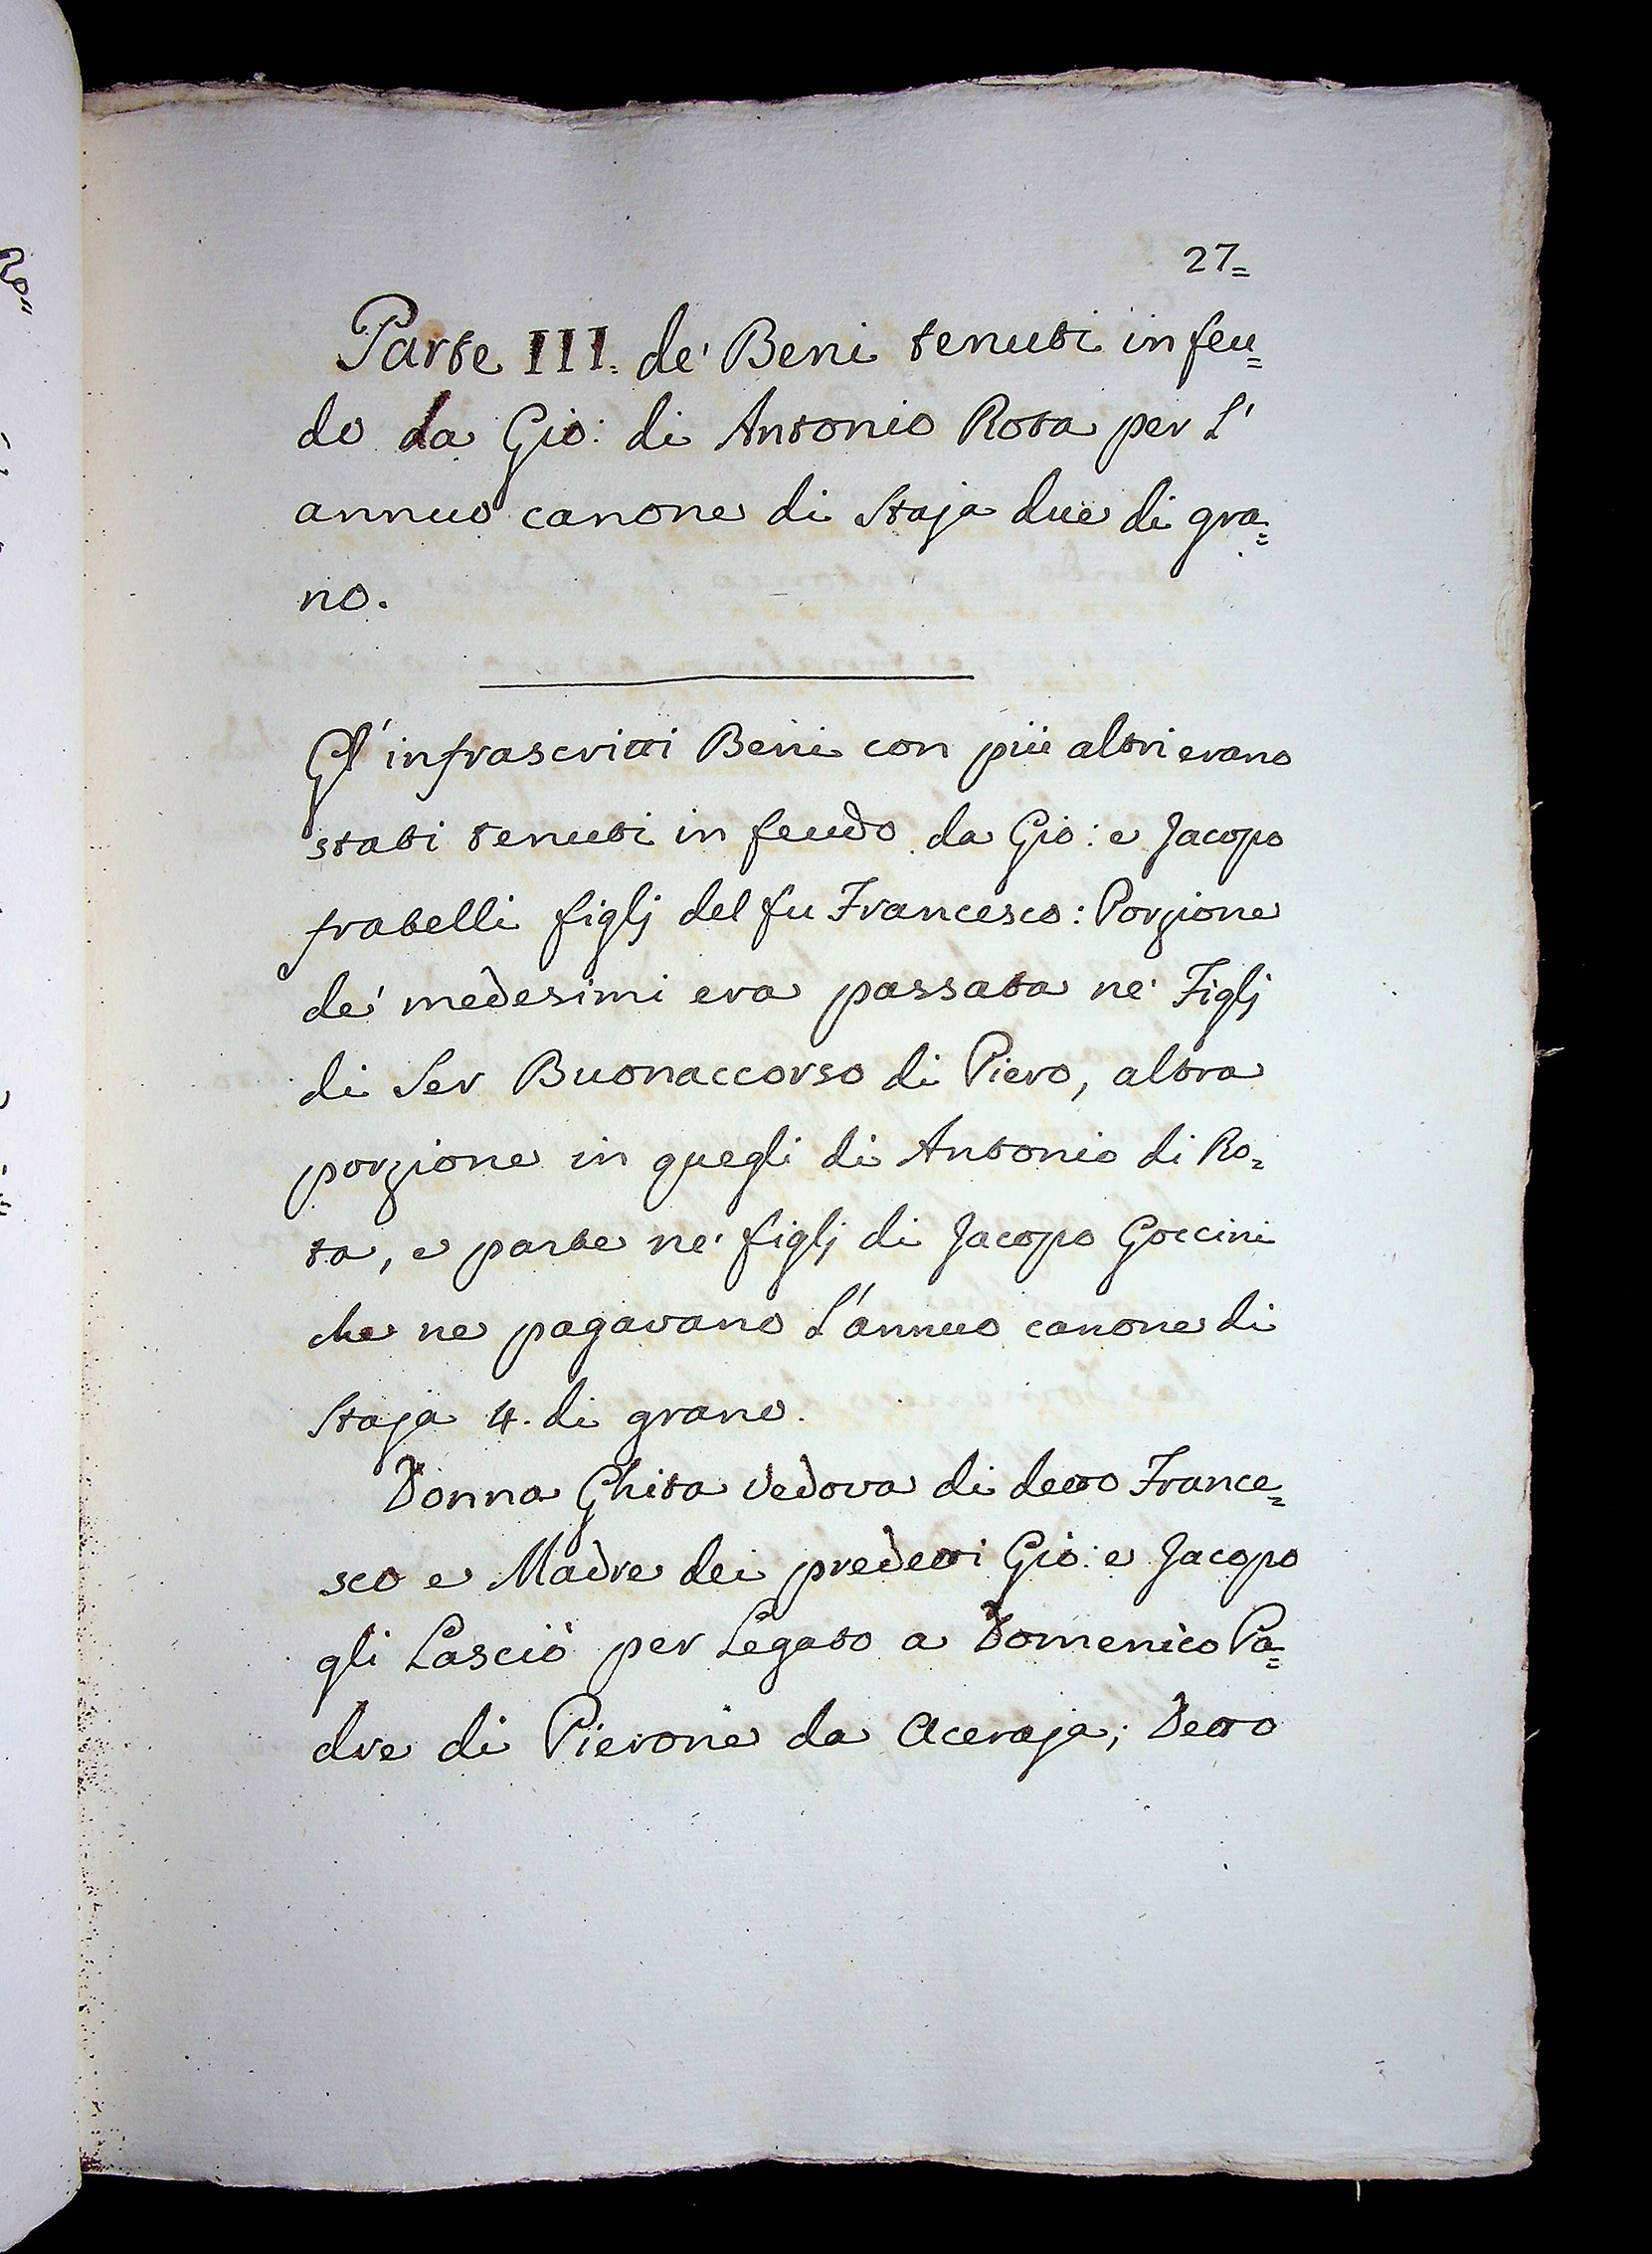 27=
Parte III. de' Beni tenuti in feu=
do da Gio: di Antonio Rota per l'
annuo canone di Staja due di gra=
no.
Gl' infrascritti Beni con più altri erano
stati tenuti in feudo da Gio: e Jacopo
fratelli figlj del fu Francesco: Porzione
de' medesimi era passata ne' Figlj
di Ser Buonaccorso di Piero, altra
porzione in quegli di Antonio di Ro=
ta, e parte ne' figlj di Jacopo Goccini
che ne pagavano l'annuo canone di
Staja 4. di grano.
Donna Ghita Vedova di detto France=
sco e Madre dei predetti Gio: e Jacopo
gli Lasciò per Legato a Domenico Pa=
dre di Pierone da Aceraja; Detto